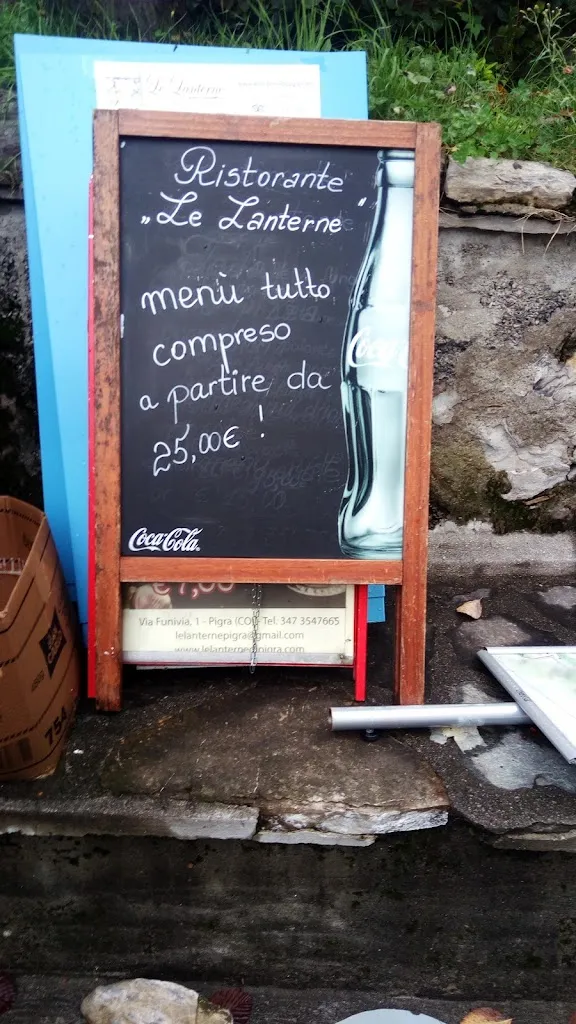 Le Lanterne
Ristorante
„Le Lanterne"
menù tutto
compreso
a partire da
25,00€ !
Coca-Cola
Coca-Cola.
€ 7,00
Via Funivia, 1 - Pigra (CO) Tel. 347 3547665
lelanternepigra@gmail.com
www.lelanternedipigra.com
75A